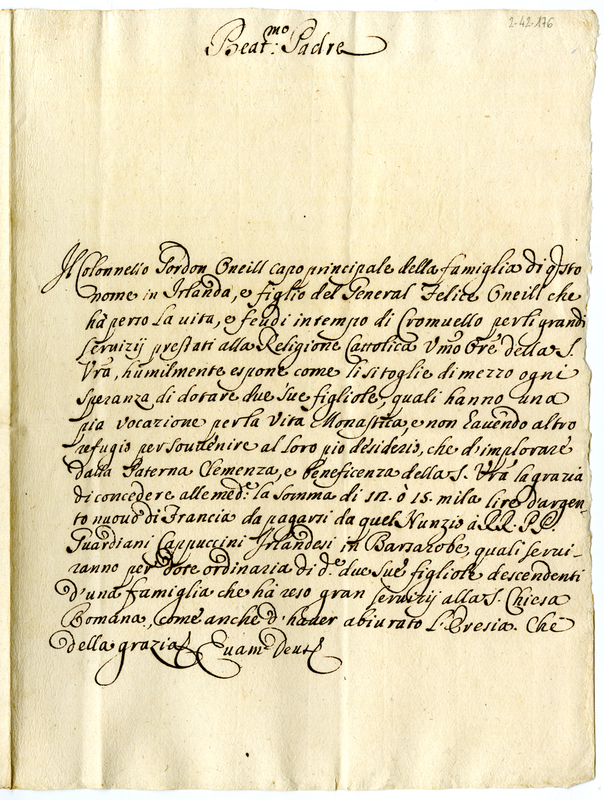 2-42-176
Beat:mo Padre
Il Colonnello Gordon Oneill capo principale della famiglia di qsto
nome in Irlanda, e figlio del General Felice Oneill che
hà perso la vita, e feudi in tempo di Cromuello per li grandi
servizij prestati alla Religione Cattolica Vmo Ore della S.
Vra, humilmente espone come li si toglie di mezzo ogni
speranza di dotare due sue figliole, quali hanno una
pia vocazione per la Vita Monastica, e non havendo altro
refugio per souuenire al loro pio desiderio, che d'implorare
dalla Paterna Clemenza, e beneficenza della S. Vra la grazia
di concedere alle med.e la somma di 12. ò 15. mila lire d'argen-
to nuouo di Francia da pagarsi da quel Nunzio à RR. PP.
Guardiani Cappuccini Irlandesi in Barsarobe, quali serui-
ranno per Dote ordinaria di d.e due sue figliole descendenti
d'una famiglia che hà reso gran servizij alla S. Chiesa
Romana, come anche d'haver abiurato l'Eresia. Che
della grazia